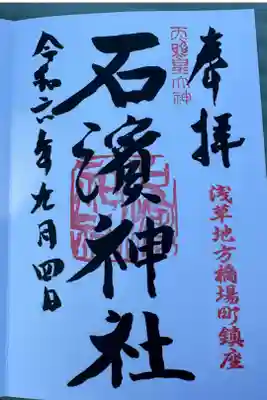 奉拝
天照皇大神
浅草地方橋場町鎮座
石濱神社
令和六年九月四日